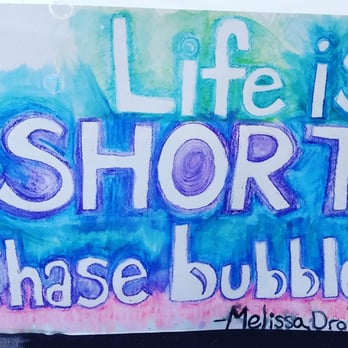 Life is
SHORT
chase bubble
-Melissa Dro